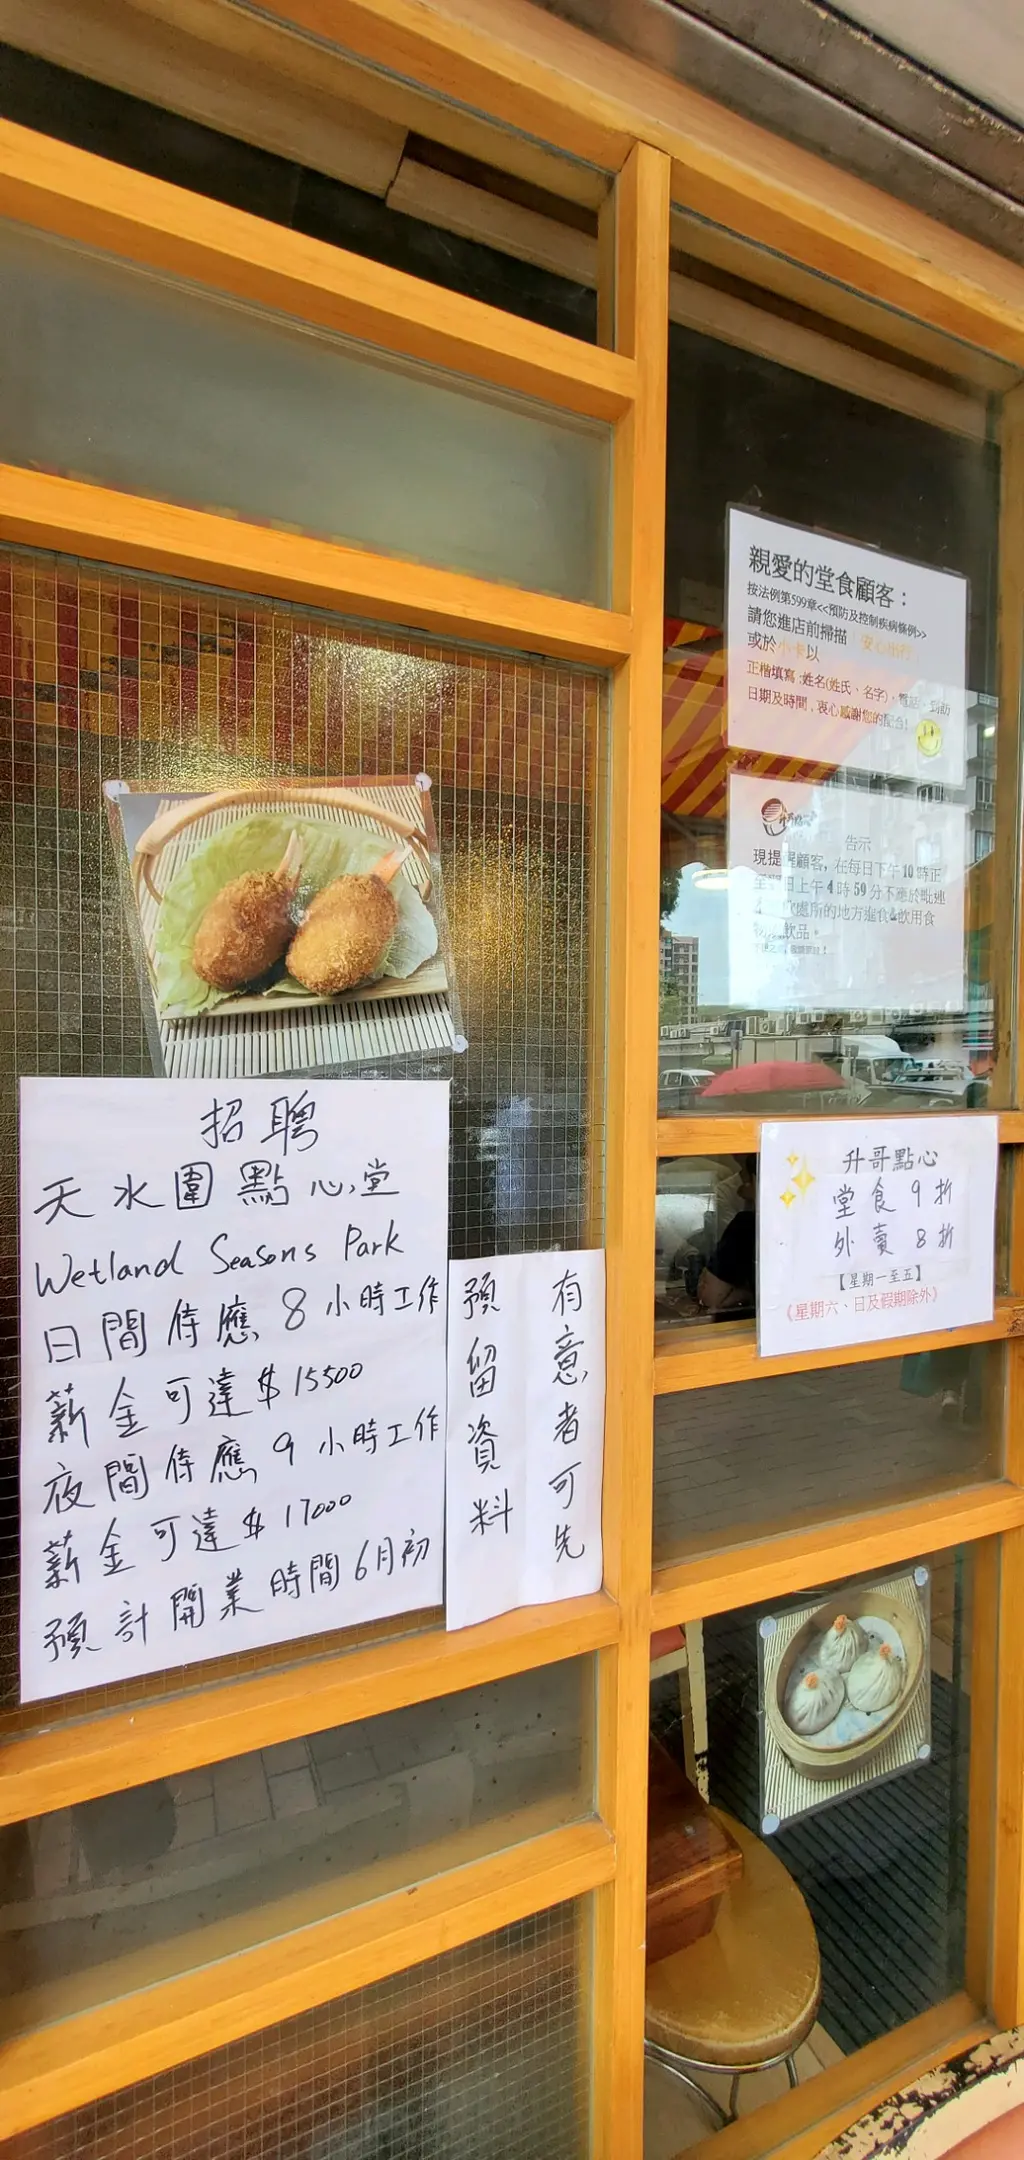 招聘
天水圍點心堂
Wetland Seasons Park
日間侍應 8小時工作
薪金可達$15500
夜間侍應 9小時工作
薪金可達$17000
預計開業時間6月初
有意者可先
預留資料
親愛的堂食顧客：
按法例第599章<<預防及控制疾病條例>>
請您進店前掃描「安心出行」
或於小卡以
正楷填寫:姓名(姓氏、名字)、電話、到訪
日期及時間，衷心感謝您的配合!
告示
現提醒顧客，在每日下午10時正
至 日上午4時59分不應於毗連
處所的地方進食&飲用食
飲品。
升哥點心
堂食9折
外賣8折
【星期一至五】
《星期六、日及假期除外》